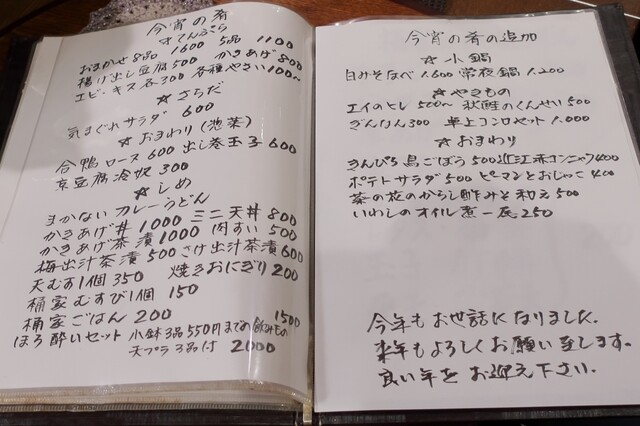 今宵の肴
☆てんぷら
おまかせ8品 1600 5品 1100
揚げ出し豆腐500 かきあげ800
エビ・キス各300 各種やさい100〜
☆さらだ
気まぐれサラダ 600
☆おまわり(惣菜)
合鴨ロース600 出し巻玉子600
京豆腐冷奴 300
☆しめ
まかないカレーうどん
かきあげ丼1000 ミニ天丼800
かきあげ茶漬1000 肉すい500
梅出汁茶漬500 さけ出汁茶漬600
天むす1個350 焼きおにぎり200
桶家むすび1個 150
桶家ごはん 200
ほろ酔いセット 小鉢3品550円までの飲みもの 1500
天プラ3品付 2000
今宵の肴の追加
☆小鍋
白みそなべ 1.600 常夜鍋 1.200
☆やきもの
エイのヒレ 500〜 秋鮭のくんせい500
ぎんなん300 卓上コンロセット 1.000
☆おまわり
きんぴら鳥ごぼう500 近江赤コンニャク400
ポテトサラダ500 ピーマンとおじゃこ400
菜の花のからし酢みそ和え500
いわしのオイル煮一尾250
今年もお世話になりました.
来年もよろしくお願い致します。
良い年をお迎え下さい.